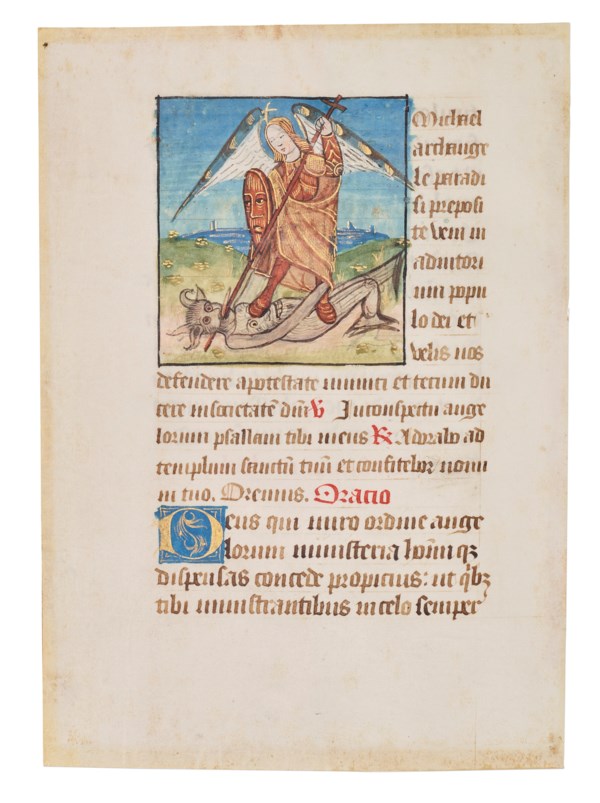 Michael
archange
le paradi
si preposi
te veni in
adiutori
um popu
lo dei et
velis nos
defendere apotestate inimici et tecum du
cere insocietatē dnī ℣ Inconspectu ange
lorum psallam tibi meus ℟ Adorabo ad
templum sanctū tuū et confitebor nomi
ni tuo. Oremus. Oracio
Deus qui miro ordine ange
lorum ministeria homī qꝫ
dispensas concede propicius: ut qͥbꝫ
tibi ministrantibus incelo semper